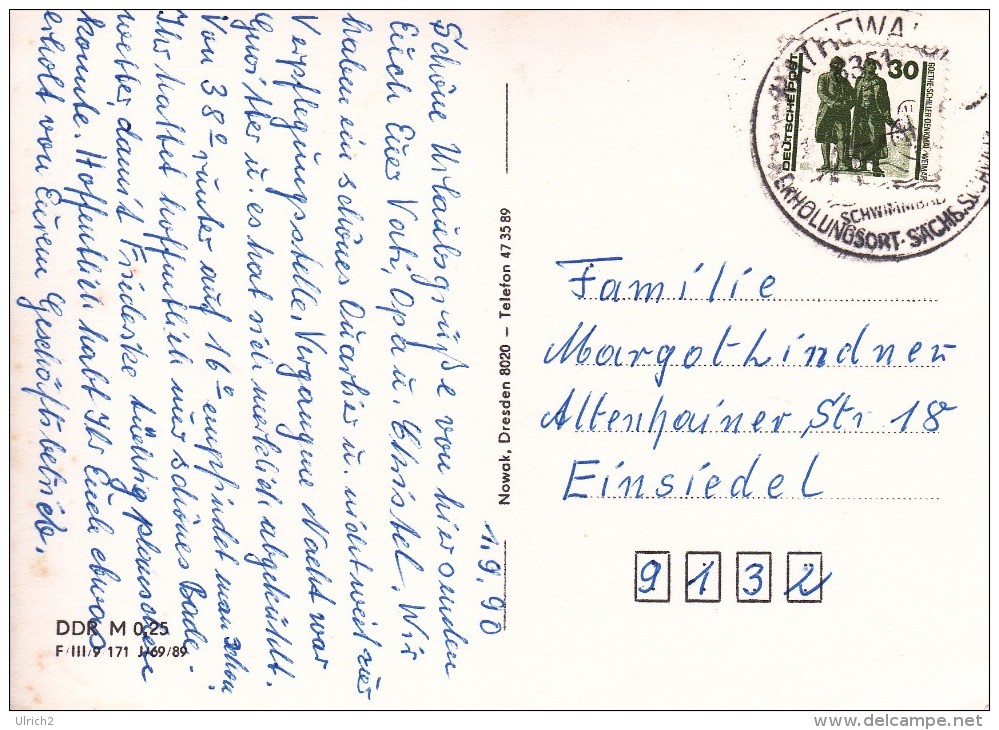 Schöne Urlaubsgrüße von hier senden
Euch Euer Vati, Opa u. Christel. Wir
haben ein schönes Quartier u. nicht weit zur
Verpflegungsstelle. Vergangne Nacht war
Gewitter u. es hat sich merklich abgekühlt.
Von 38° runter auf 16° empfindet man schon.
Ihr hattet hoffentlich nur schönes Bade-
wetter, damit Friederike tüchtig planschen
konnte. Hoffentlich habt Ihr Euch etwas
erholt von Eurem Geschäftsbetrieb.
1.9.90
DDR M 0,25
F/III/9 171 J/69/89
Nowak, Dresden 8020 – Telefon 47 35 89
RATHEWALDE
8351
SCHWIMMBAD
ERHOLUNGSORT · SÄCHS. SCHWEIZ
DEUTSCHE POST
30
GOETHE-SCHILLER-DENKMAL/WEIMAR
Familie
Margot Lindner
Altenhainer Str 18
Einsiedel
9132
Ulrich2
www.delcampe.net